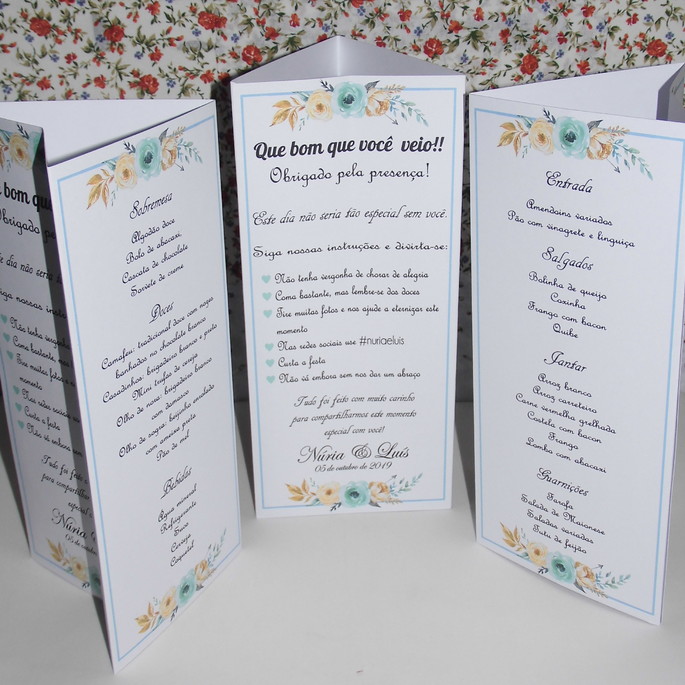 Que bom que v
Obrigado
Este dia não seria
Siga nossas instru
Não tenha vergon
Como bastante,
Tire muitas fotos
momento
Nas redes sociais
Curta a festa
Não vá embora sem
Tudo foi feito
para compartilha
especial
Núria &
05 de outub
Sobremesa
Algodão doce
Bolo de abacaxi
Cascata de chocolate
Sorvete de creme
Doces
Camafeu: tradicional doce com nozes
banhados no chocolate branco
Casadinhos: brigadeiro branco e preto
Mini trufas de cereja
Olho de nose: brigadeiro branco
com damasco
Olho de sogra: beijinho enrolado
com ameixa preta
Pão de mel
Bebidas
Água mineral
Refrigerante
Suco
Cerveja
Coquetel
Que bom que você veio!!
Obrigado pela presença!
Este dia não seria tão especial sem você.
Siga nossas instruções e divirta-se:
Não tenha vergonha de chorar de alegria
Coma bastante, mas lembre-se dos doces
Tire muitas fotos e nos ajude a eternizar este
momento
Nas redes sociais use #nuriaeluis
Curta a festa
Não vá embora sem nos dar um abraço
Tudo foi feito com muito carinho
para compartilharmos este momento
especial com você!
Núria & Luis
05 de outubro de 2019
Entrada
Amendoins variados
Pão com vinagrete e linguiça
Salgados
Bolinha de queijo
Coxinha
Frango com bacon
Quibe
Jantar
Arroz branco
Arroz carreteiro
Carne vermelha grelhada
Costela com bacon
Frango
Lombo com abacaxi
Guarnições
Farofa
Salada de Maionese
Saladas variadas
Tutu de feijão